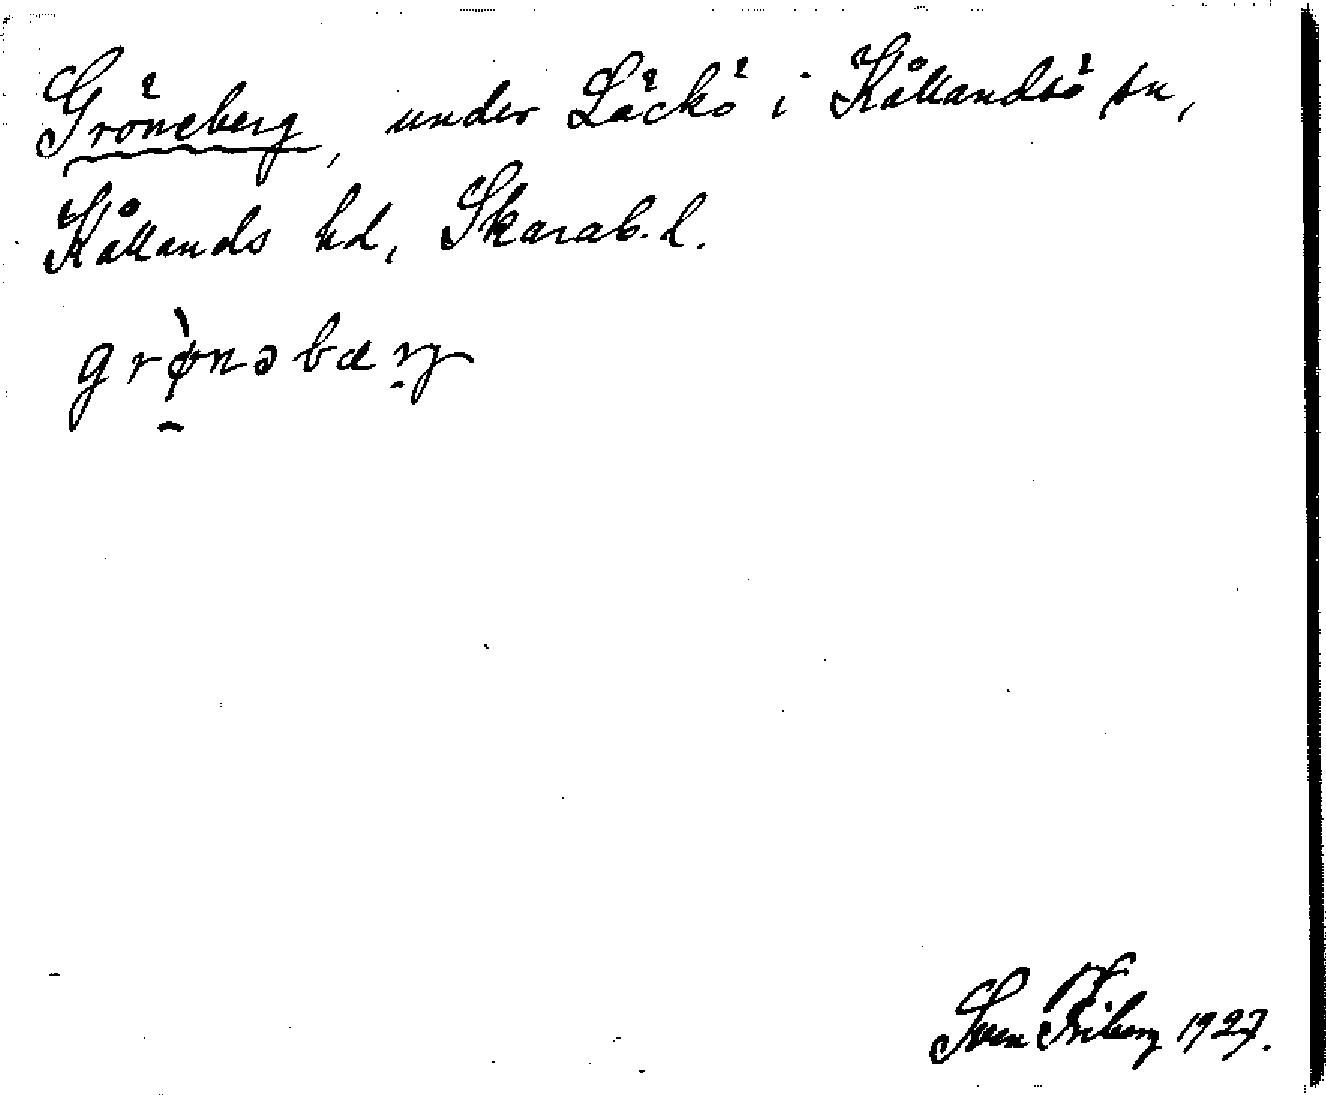 Gröneberg, under Läckö i Kållandsö sn,
Kållands hd, Skarab. l.
grø̀nəbærg
Sven Friberg 1927.